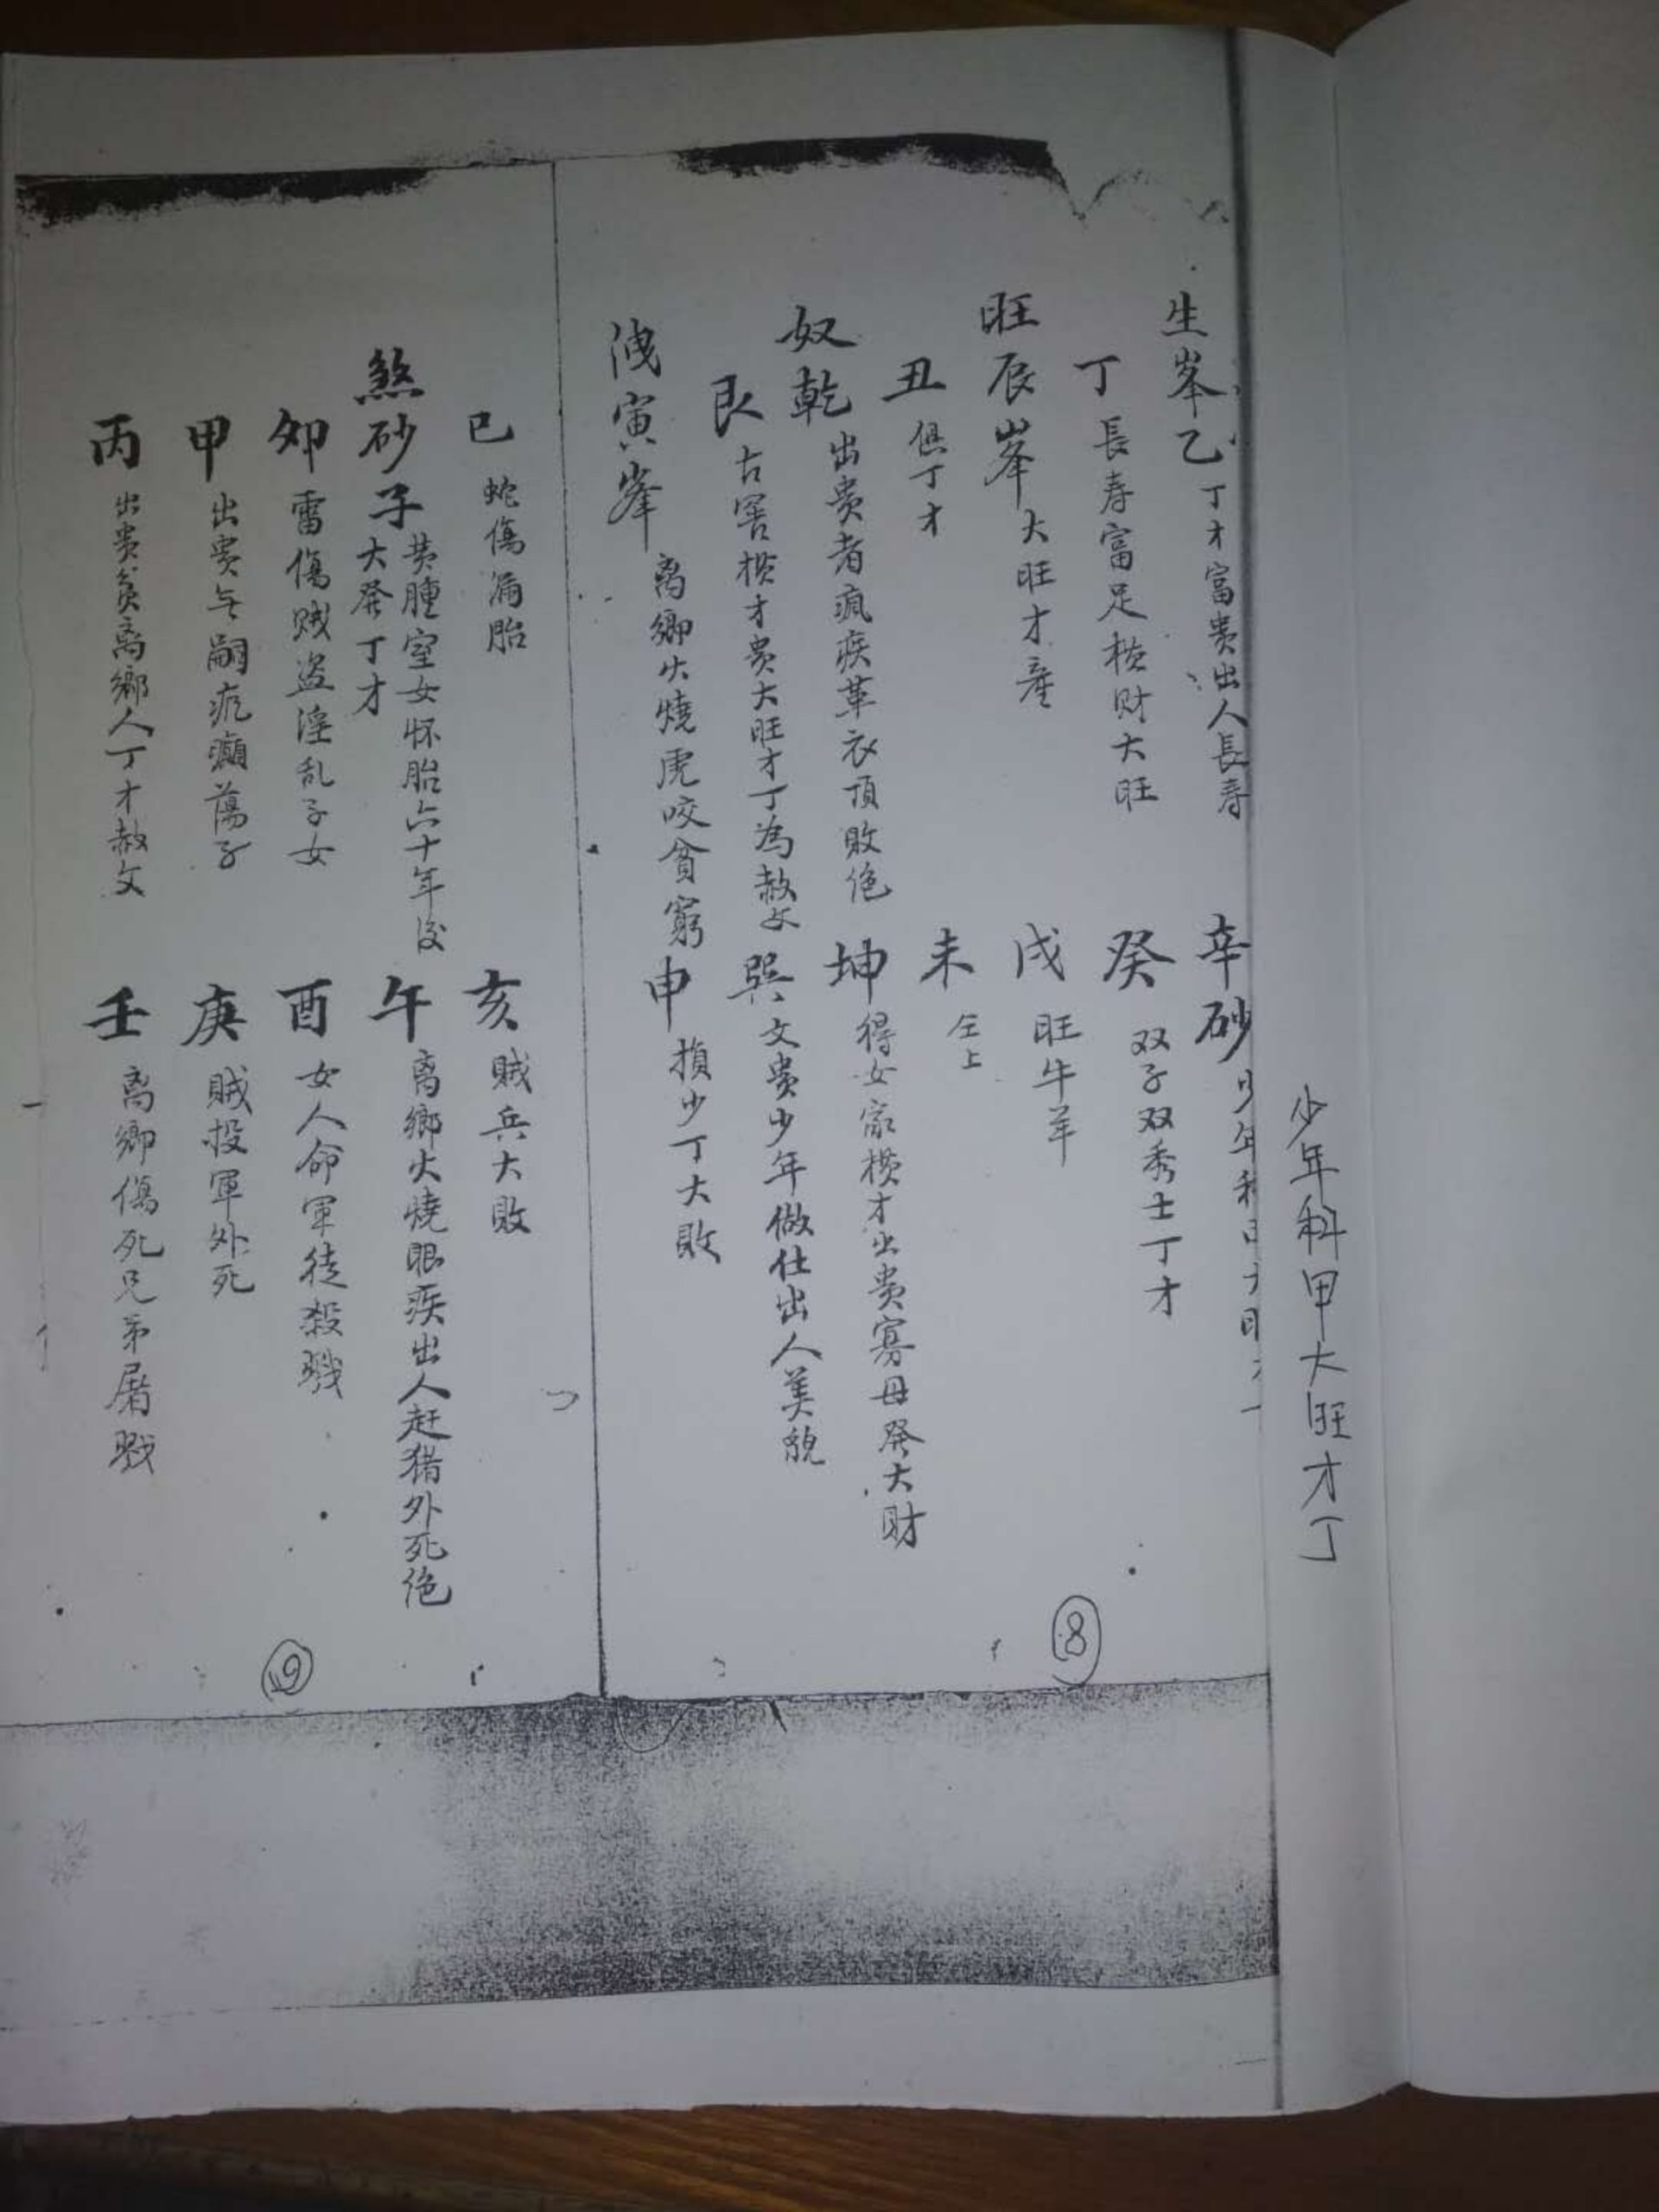 少年科甲大旺才丁
生峯乙 丁才富贵出人長寿
辛砂 少年科
丁 長寿富足横财大旺
癸 双子双秀士丁才
旺辰峯 大旺才産
戌 旺牛羊
丑 俱丁才
未 仝上
奴乾 出贵者疯疾革衣頂敗绝
坤 得女家横才出贵寡母癸大财
艮 古窖横才贵大旺才丁為赦文
巽 文贵少年做仕出人美貌
洩寅峯 离鄉火燒虎咬貧窮
申 損少丁大敗
巳 蛇傷漏胎
亥 贼兵大敗
煞砂子 黄腫室女怀胎六十年後
大癸丁才
午 离鄉火燒眼疾出人赶猎外死绝
卯 雷傷贼盗淫乱子女
酉 女人命軍徒殺戮
甲 出贵无嗣疯癲蕩子
庚 贼投軍外死
丙 出贵贫离鄉人丁才赦文
壬 离鄉傷死兄弟屠戮
⑧
⑨